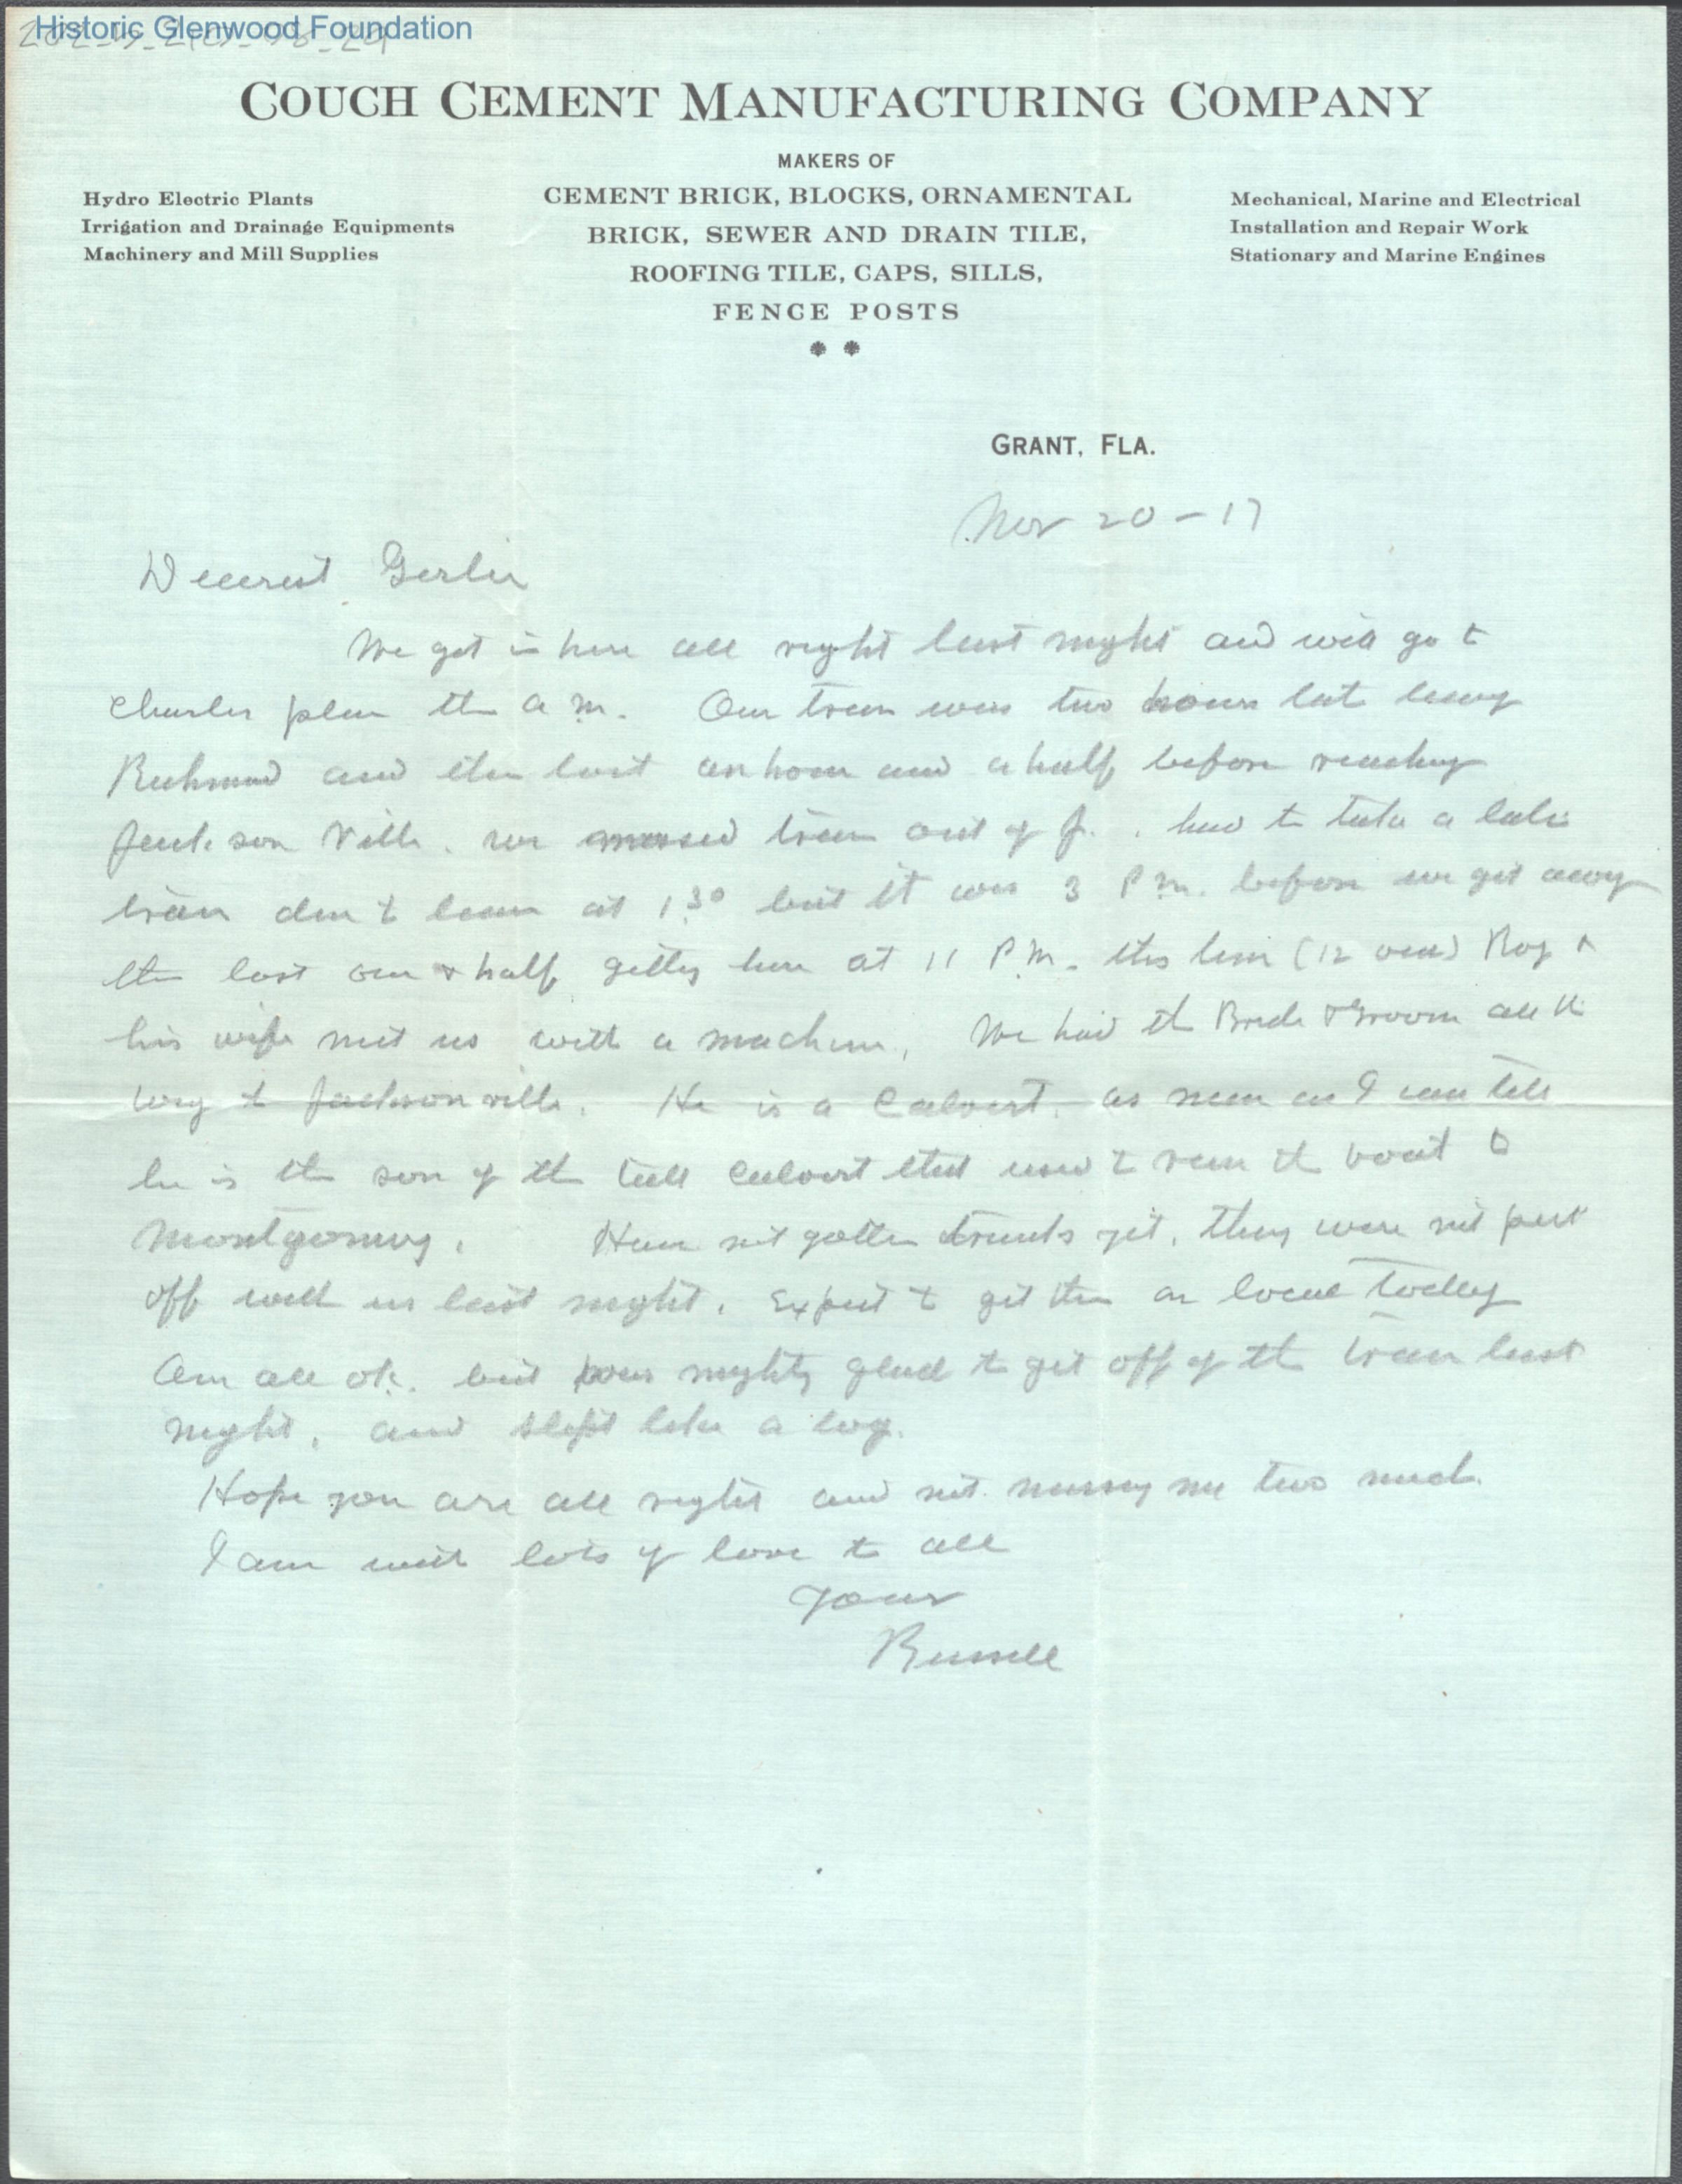 Historic Glenwood Foundation
COUCH CEMENT MANUFACTURING COMPANY
MAKERS OF
CEMENT BRICK, BLOCKS, ORNAMENTAL
BRICK, SEWER AND DRAIN TILE,
ROOFING TILE, CAPS, SILLS,
FENCE POSTS
Hydro Electric Plants
Irrigation and Drainage Equipments
Machinery and Mill Supplies
Mechanical, Marine and Electrical
Installation and Repair Work
Stationary and Marine Engines
GRANT, FLA.
Nov 20 - 17
Dearest
We got in here all right last night and will go to
Charles place this a m. Our train was two hours late leaving
Richmond and then lost an hour and a half before reaching
Jackson Ville. we missed train out of J. had to take a late
train due to leave at 1.30 but it was 3 P m. before we got away
then lost one & half getting here at 11 P.M. this time (12 our) Roy &
his wife met us with a machine, We had the Bride & Groom all the
way to Jacksonville. He is a Calvert. as near as I can tell
he is the son of the tall Calvert that used to run the boat to
Montgomery. Have not gotten trunks yet, they were not put
off with us last night. Expect to get them on local today
Am all ok. but was mighty glad to get off of the train last
night, and slept like a log.
Hope you are all right and not missing me two much.
I am with lots of love to all
Your
Russell